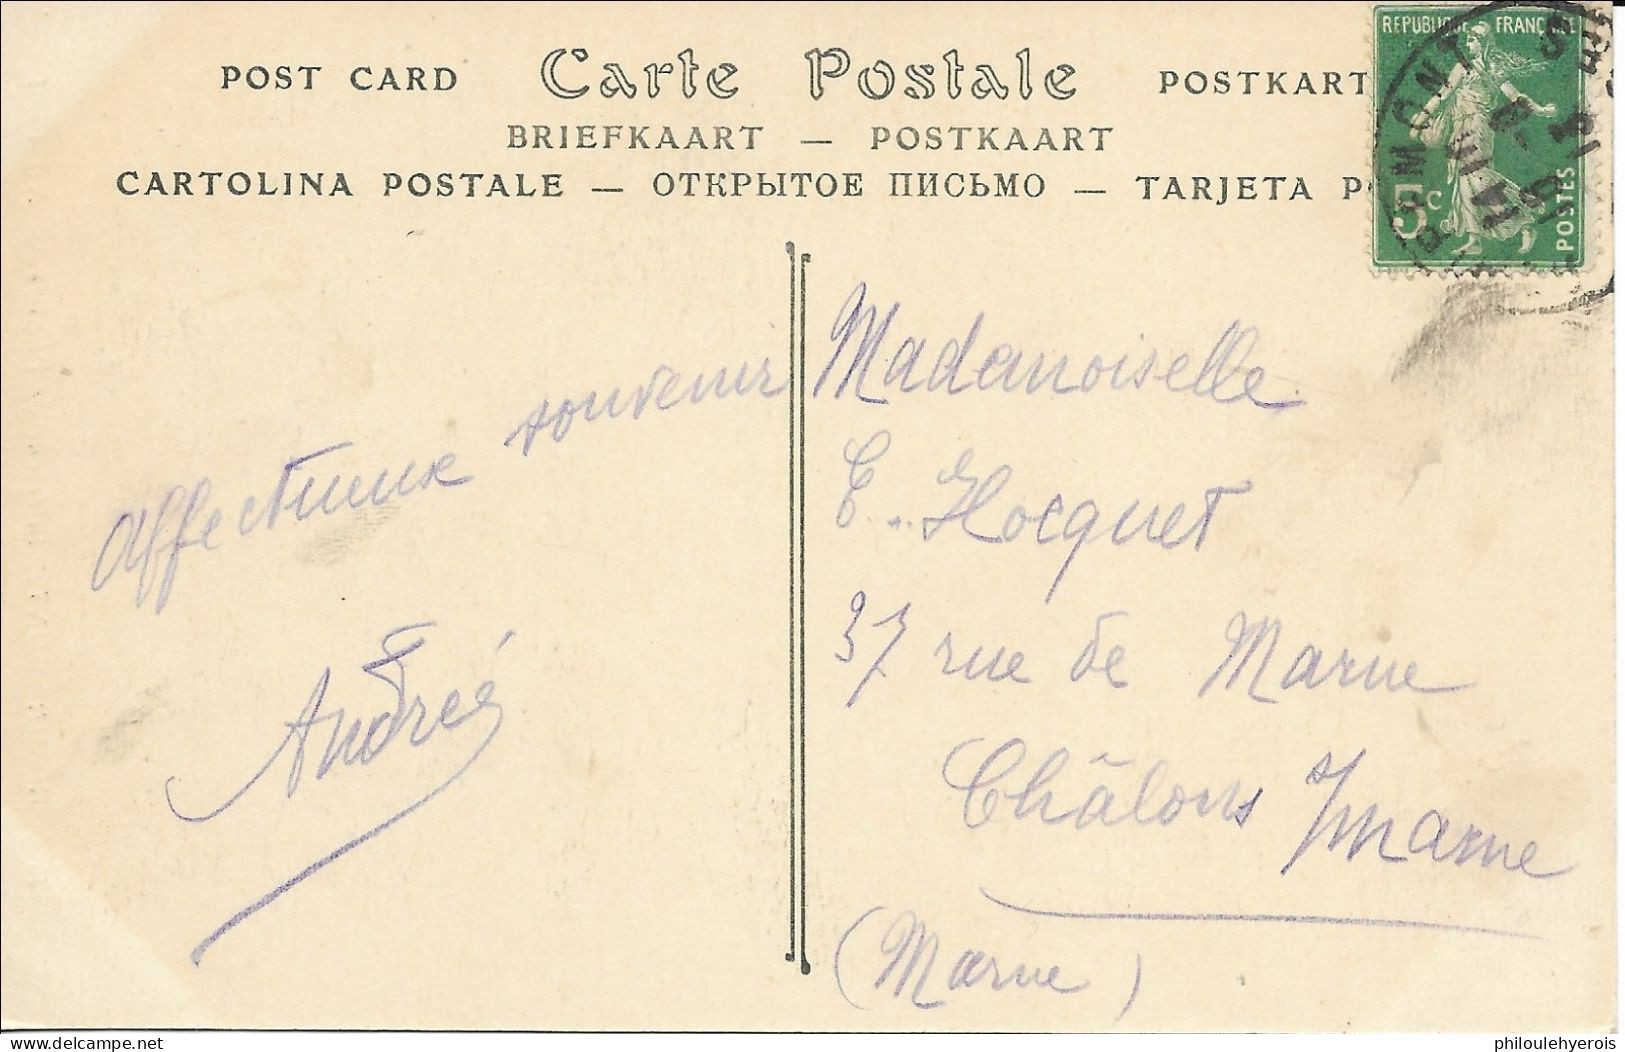 POST CARD Carte Postale POSTKART
BRIEFKAART — POSTKAART
CARTOLINA POSTALE — ОТКРЫТОЕ ПИСЬМО — TARJETA P
REPUBLIQUE FRANÇAISE
5c
POSTES
Affectueux souvenir
Andrée
Mademoiselle
E. Hocquet
37 rue de Marne
Châlons s/Marne
(Marne)
delcampe.net
philoulehyerois